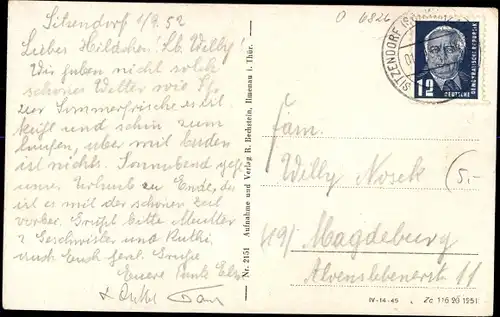 Sitzendorf 1/9.52
Lieber Hildchen! Lb. Willy!
Wir haben nicht solch
schönes Wetter wie Ihr
zur Sommerfrische es ist
kühl und schön zum
laufen, aber mit baden
ist nichts. Sonnabend geht
unser Urlaub zu Ende, da
ist es mit der schönen Zeit
vorbei. Grüßt bitte Mutter
Geschwister und
und Euch herzl. Grüße
Eure Tante Else
+ Onkel
Nr. 2151 Aufnahme und Verlag R. Bechstein, Ilmenau i. Thür.
0 6826
SITZENDORF
12
DEUTSCHE
DEMOKRATISCHE REPUBLIK
Fam.
Willy Nosek
5,-
19/ Magdeburg
Alvenslebenerstr. 11
IV-14-45 Zc 116 90 1951